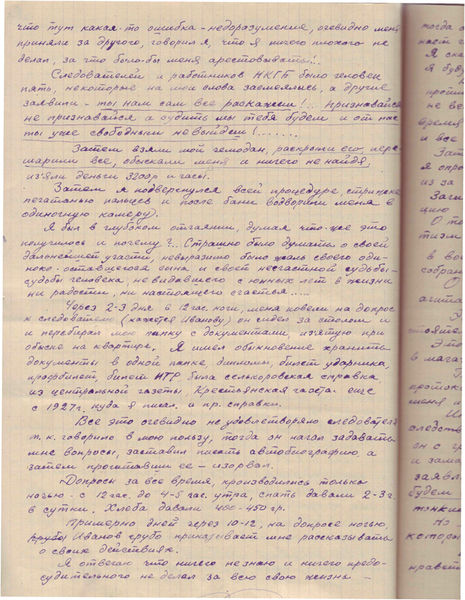 что тут какая-то ошибка-недоразумение, очевидно меня
приняли за другого, говорил я, что я ничего плохого не
делал, за что было-бы меня арестовывать!..
Следователей и работников НКГБ было человек
пять, некоторые на мои слова засмеялись, а другие
заявили - ты нам сам все расскажеш!... Признавайся
не признавайся а судить мы тебя будем и от нас
ты уже свободным не выйдеш!.......
Затем взяли мой чемодан, раскрыли его, пере-
шарили все, обыскали меня и ничего не найдя,
из'яли деньги 3200р и часы.
Затем я подвергнулся всей процедуре, стрижке,
печатанью пальцев и после бани водворили меня в
одиночную камеру).
Я был в глубоком отчаянии, думая что-же это
получилось и почему?.. Страшно было думать о своей
дальнейшей участи, невыразимо было жаль своего оди-
ноко-оставшегося сына и своей несчастной судьбы-
судьбы человека, не видавшего с юнных лет в жизни
ни радости, ни настоящего счастья.....
Через 2-3 дня в 12 час ночи, меня повели на допрос
к следователю (кажется Иванову), он сидел за столом и
и перебирал мою папку с документами, взятую при
обыске на квартире. Я имел обыкновение хранить
документы в одной папке, дипломы, билет ударника,
профбилет, билет ИТР была селькоровская справка
из центральной газеты, Крестьянская газета. еще
с 1927г. куда я писал. и пр. справки.
Все это очевидно не удовлетворяло следователя
т.к. говорило в мою пользу, тогда он начал задавать
мне вопросы, заставил писать автобиографию, а
затем прочитавши ее - изорвал.
Допросы за все время, производились только
ночью - с 12 час. до 4-5 час. утра, спать давали 2-3 ч.
в сутки. Хлеба давали 400-450 гр.
Примерно дней через 10-12, на допросе ночью,
Иванов грубо приказывает мне рассказывать
о своих действиях.
Я отвечаю что ничего не знаю и ничего предо-
судительного не делал за всю свою жизнь -